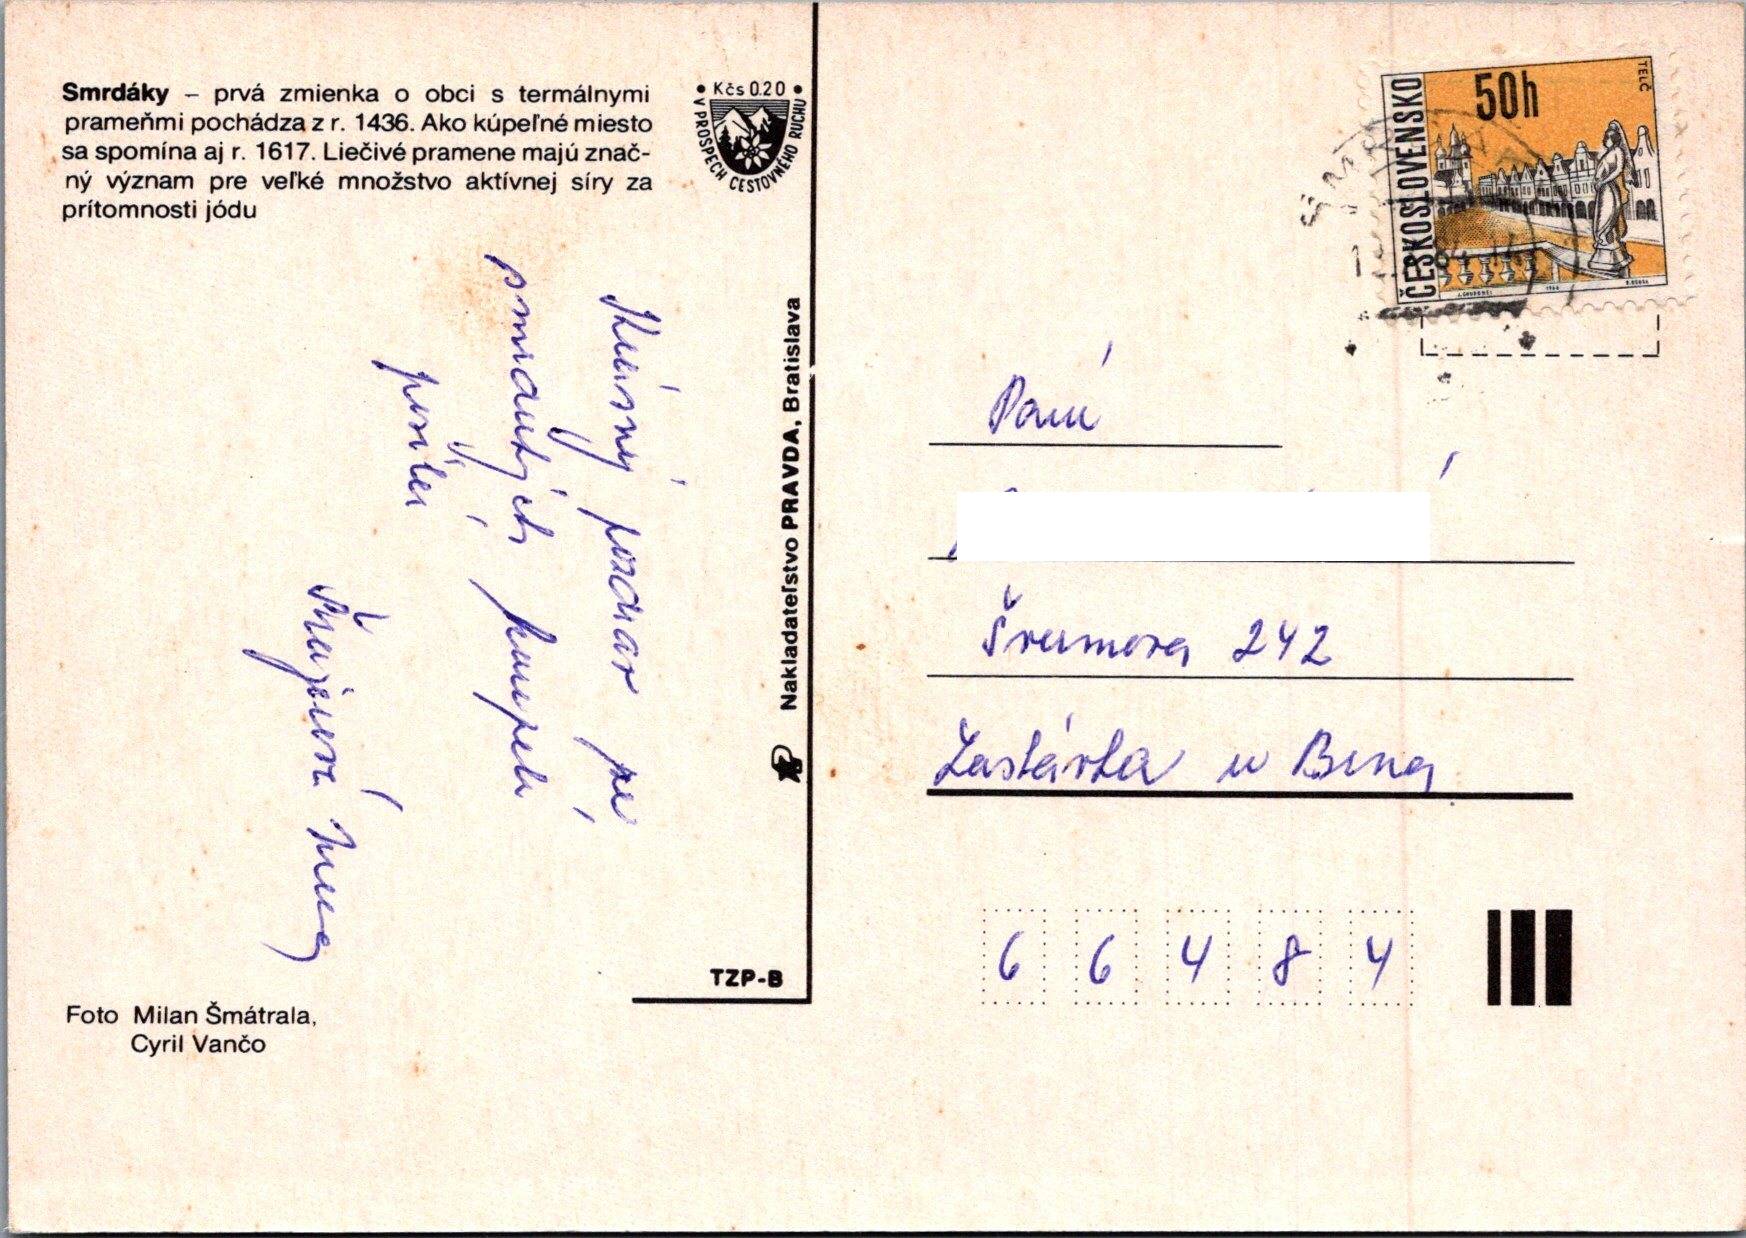 Smrdáky – prvá zmienka o obci s termálnymi
prameňmi pochádza z r. 1436. Ako kúpeľné miesto
sa spomína aj r. 1617. Liečivé pramene majú znač-
ný význam pre veľké množstvo aktívnej síry za
prítomnosti jódu
• Kčs 0.20 •
V PROSPECH CESTOVNÉHO RUCHU
Krásný pozdrav ze
smradlých koupelí
posílá
Nakladateľstvo PRAVDA, Bratislava
TZP-B
Foto Milan Šmátrala,
Cyril Vančo
ČESKOSLOVENSKO
50h
TELČ
1966
Paní
Švermova 242
Zastávka u Brna
66484